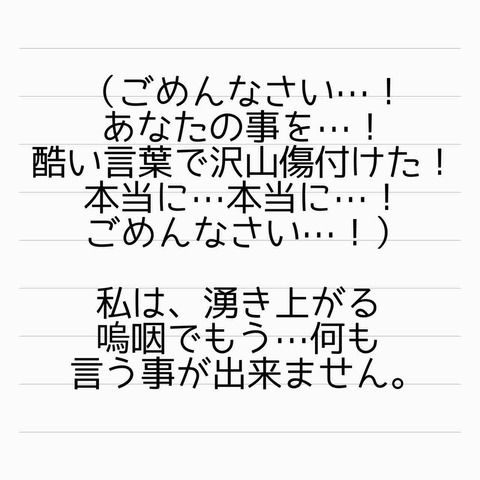 （ごめんなさい…！
あなたの事を…！
酷い言葉で沢山傷付けた！
本当に…本当に…！
ごめんなさい…！）
私は、湧き上がる
嗚咽でもう…何も
言う事が出来ません。